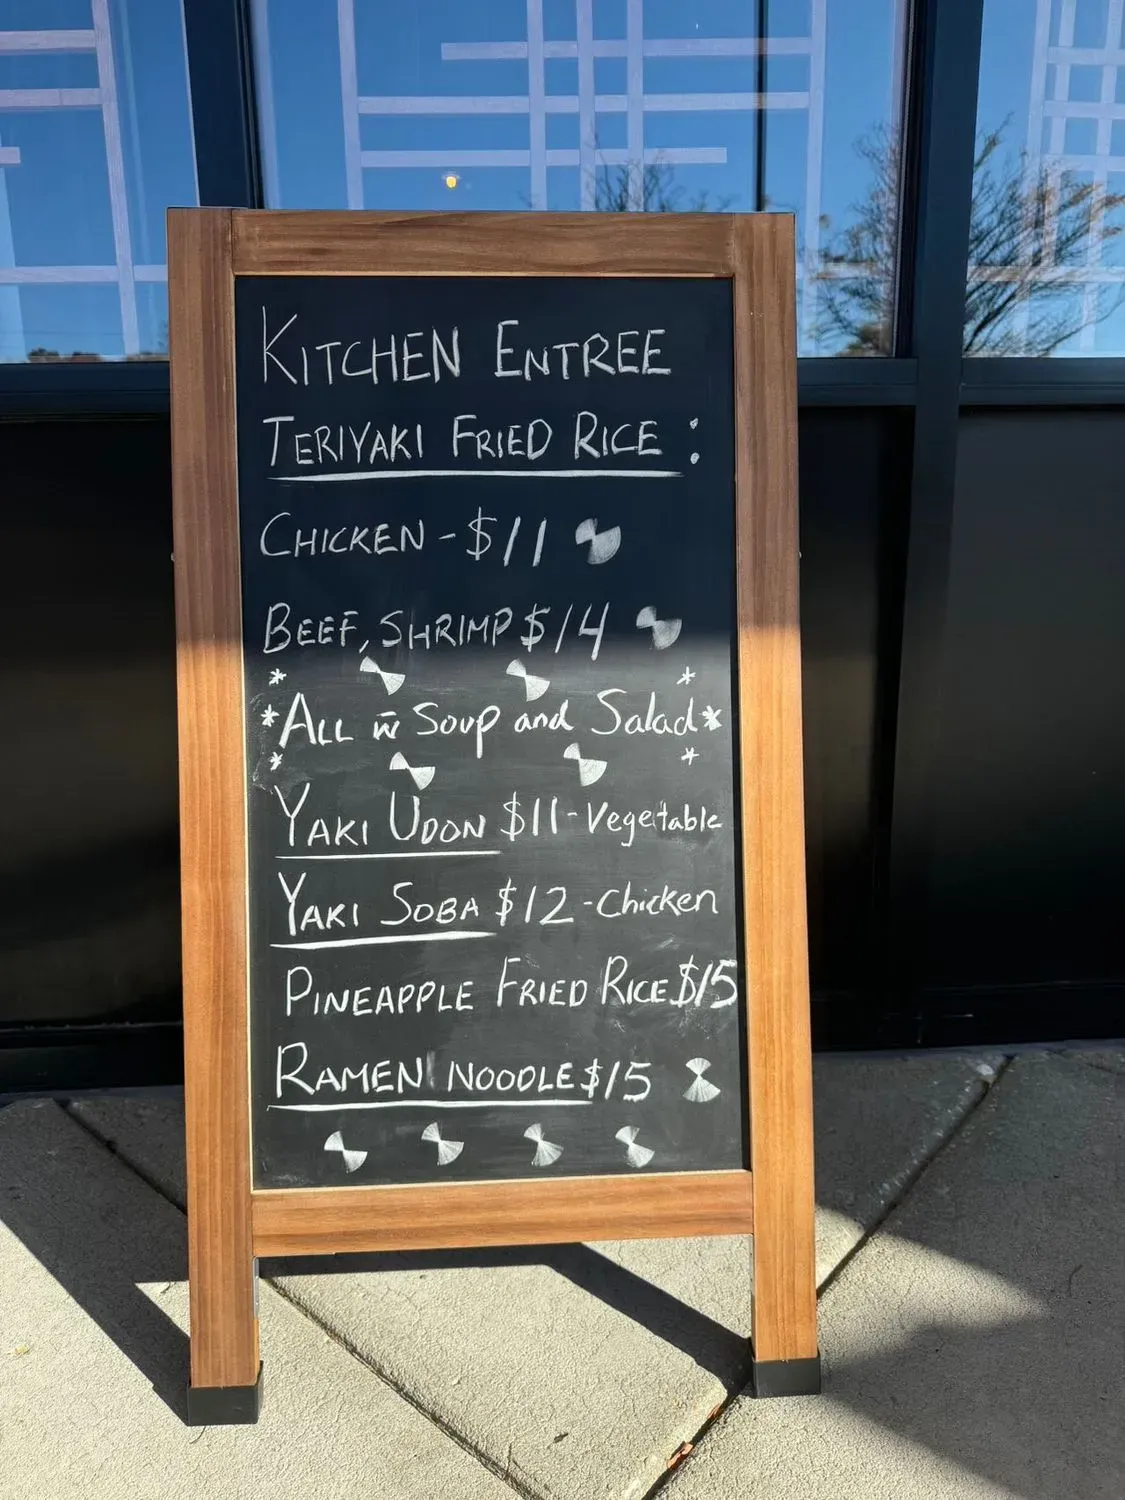 KITCHEN ENTREE
TERIYAKI FRIED RICE :
CHICKEN - $11
BEEF, SHRIMP $14
* *
* ALL w̄ Soup and Salad *
* *
YAKI UDON $11 - Vegetable
YAKI SOBA $12 - Chicken
PINEAPPLE FRIED RICE $15
RAMEN NOODLE $15